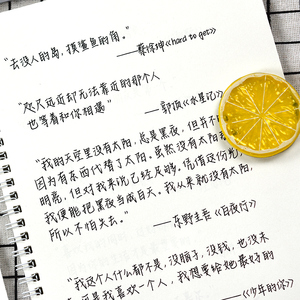 "去没人的岛，摸鲨鱼的角。"
——蔡徐坤《hard to get》
"咫尺远近却无法靠近的那个人
也等着和你相遇"
——郭顶《水星记》
"我的天空里没有太阳，总是黑夜，但并不
因为有东西代替了太阳。虽然没有太阳
明亮，但对我来说已经足够。凭借这份光，
我便能把黑夜当成白天。我从来就没有太阳，
所以不怕失去。"
——东野圭吾《白夜行》
"我这个人什么都不是，没脑子，没钱，也没未
是我喜欢一个人，我想要给她最好的
——《少年的你》